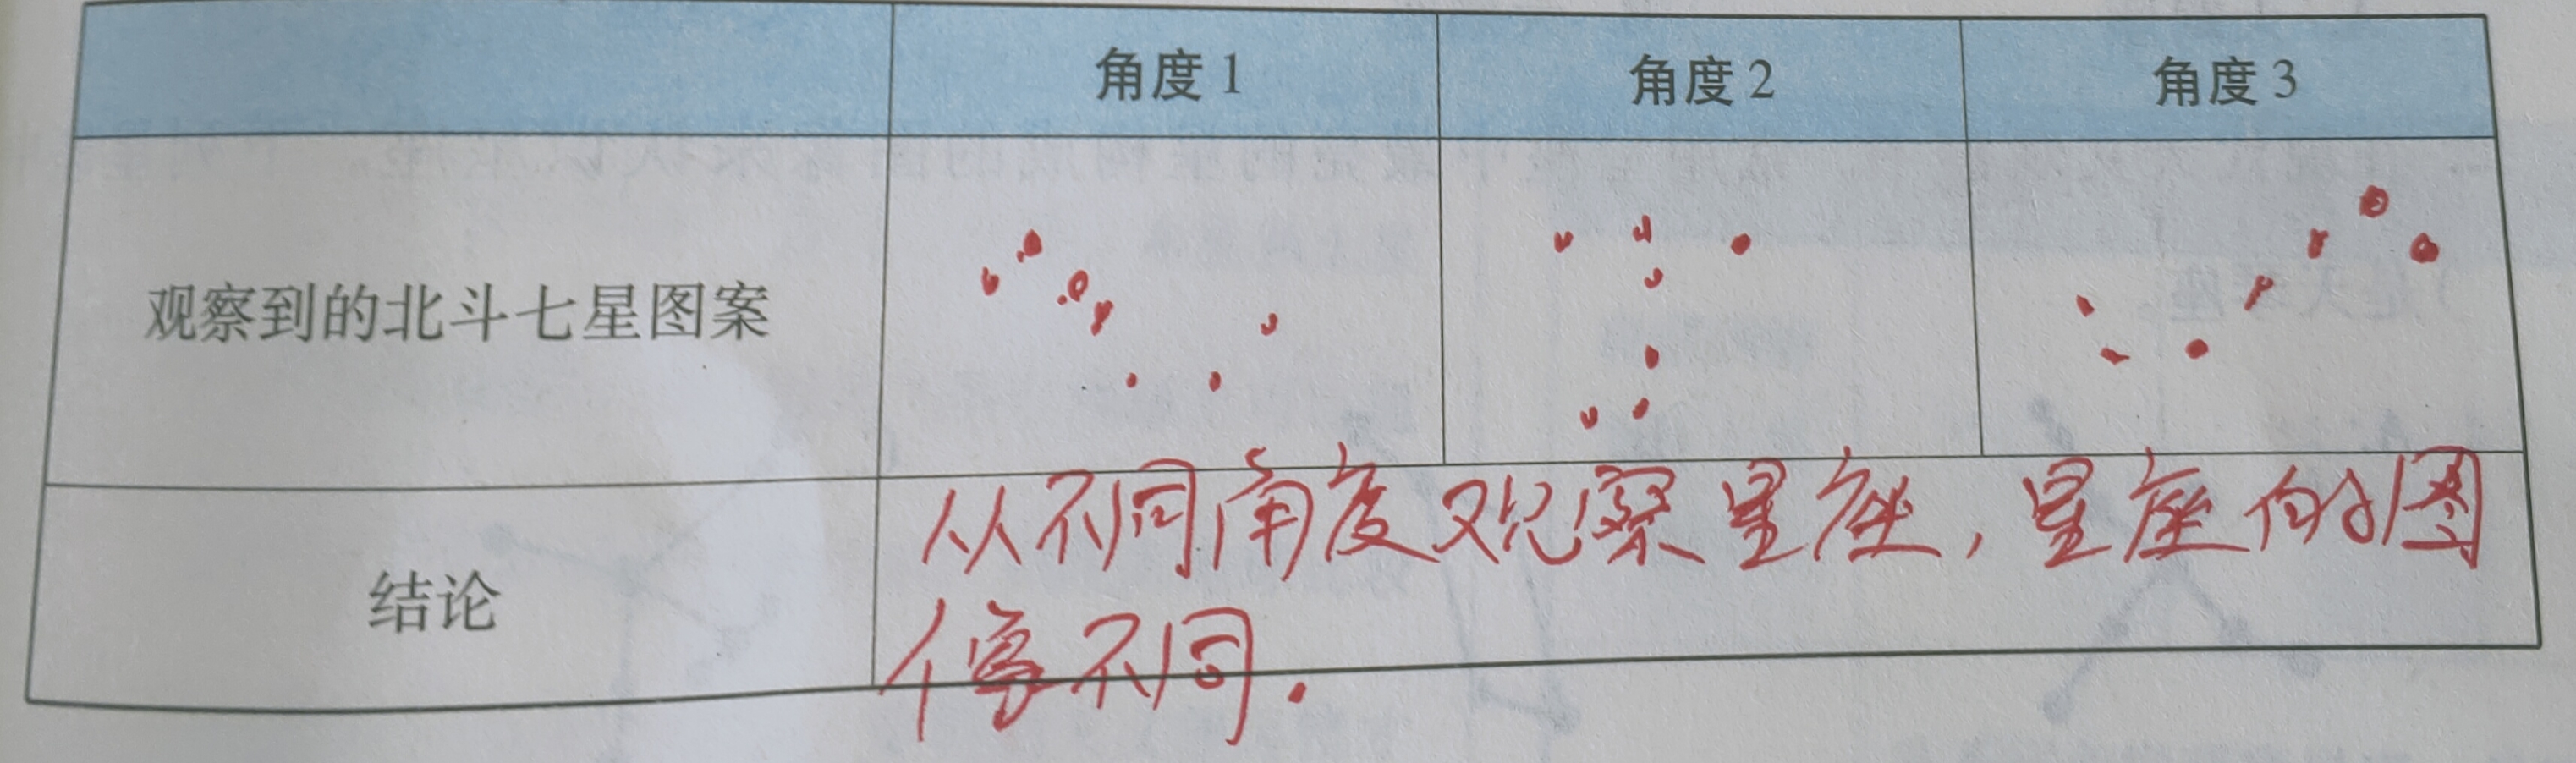 角度1 角度2 角度3
观察到的北斗七星图案
结论
从不同角度观察星座,星座的图
像不同.